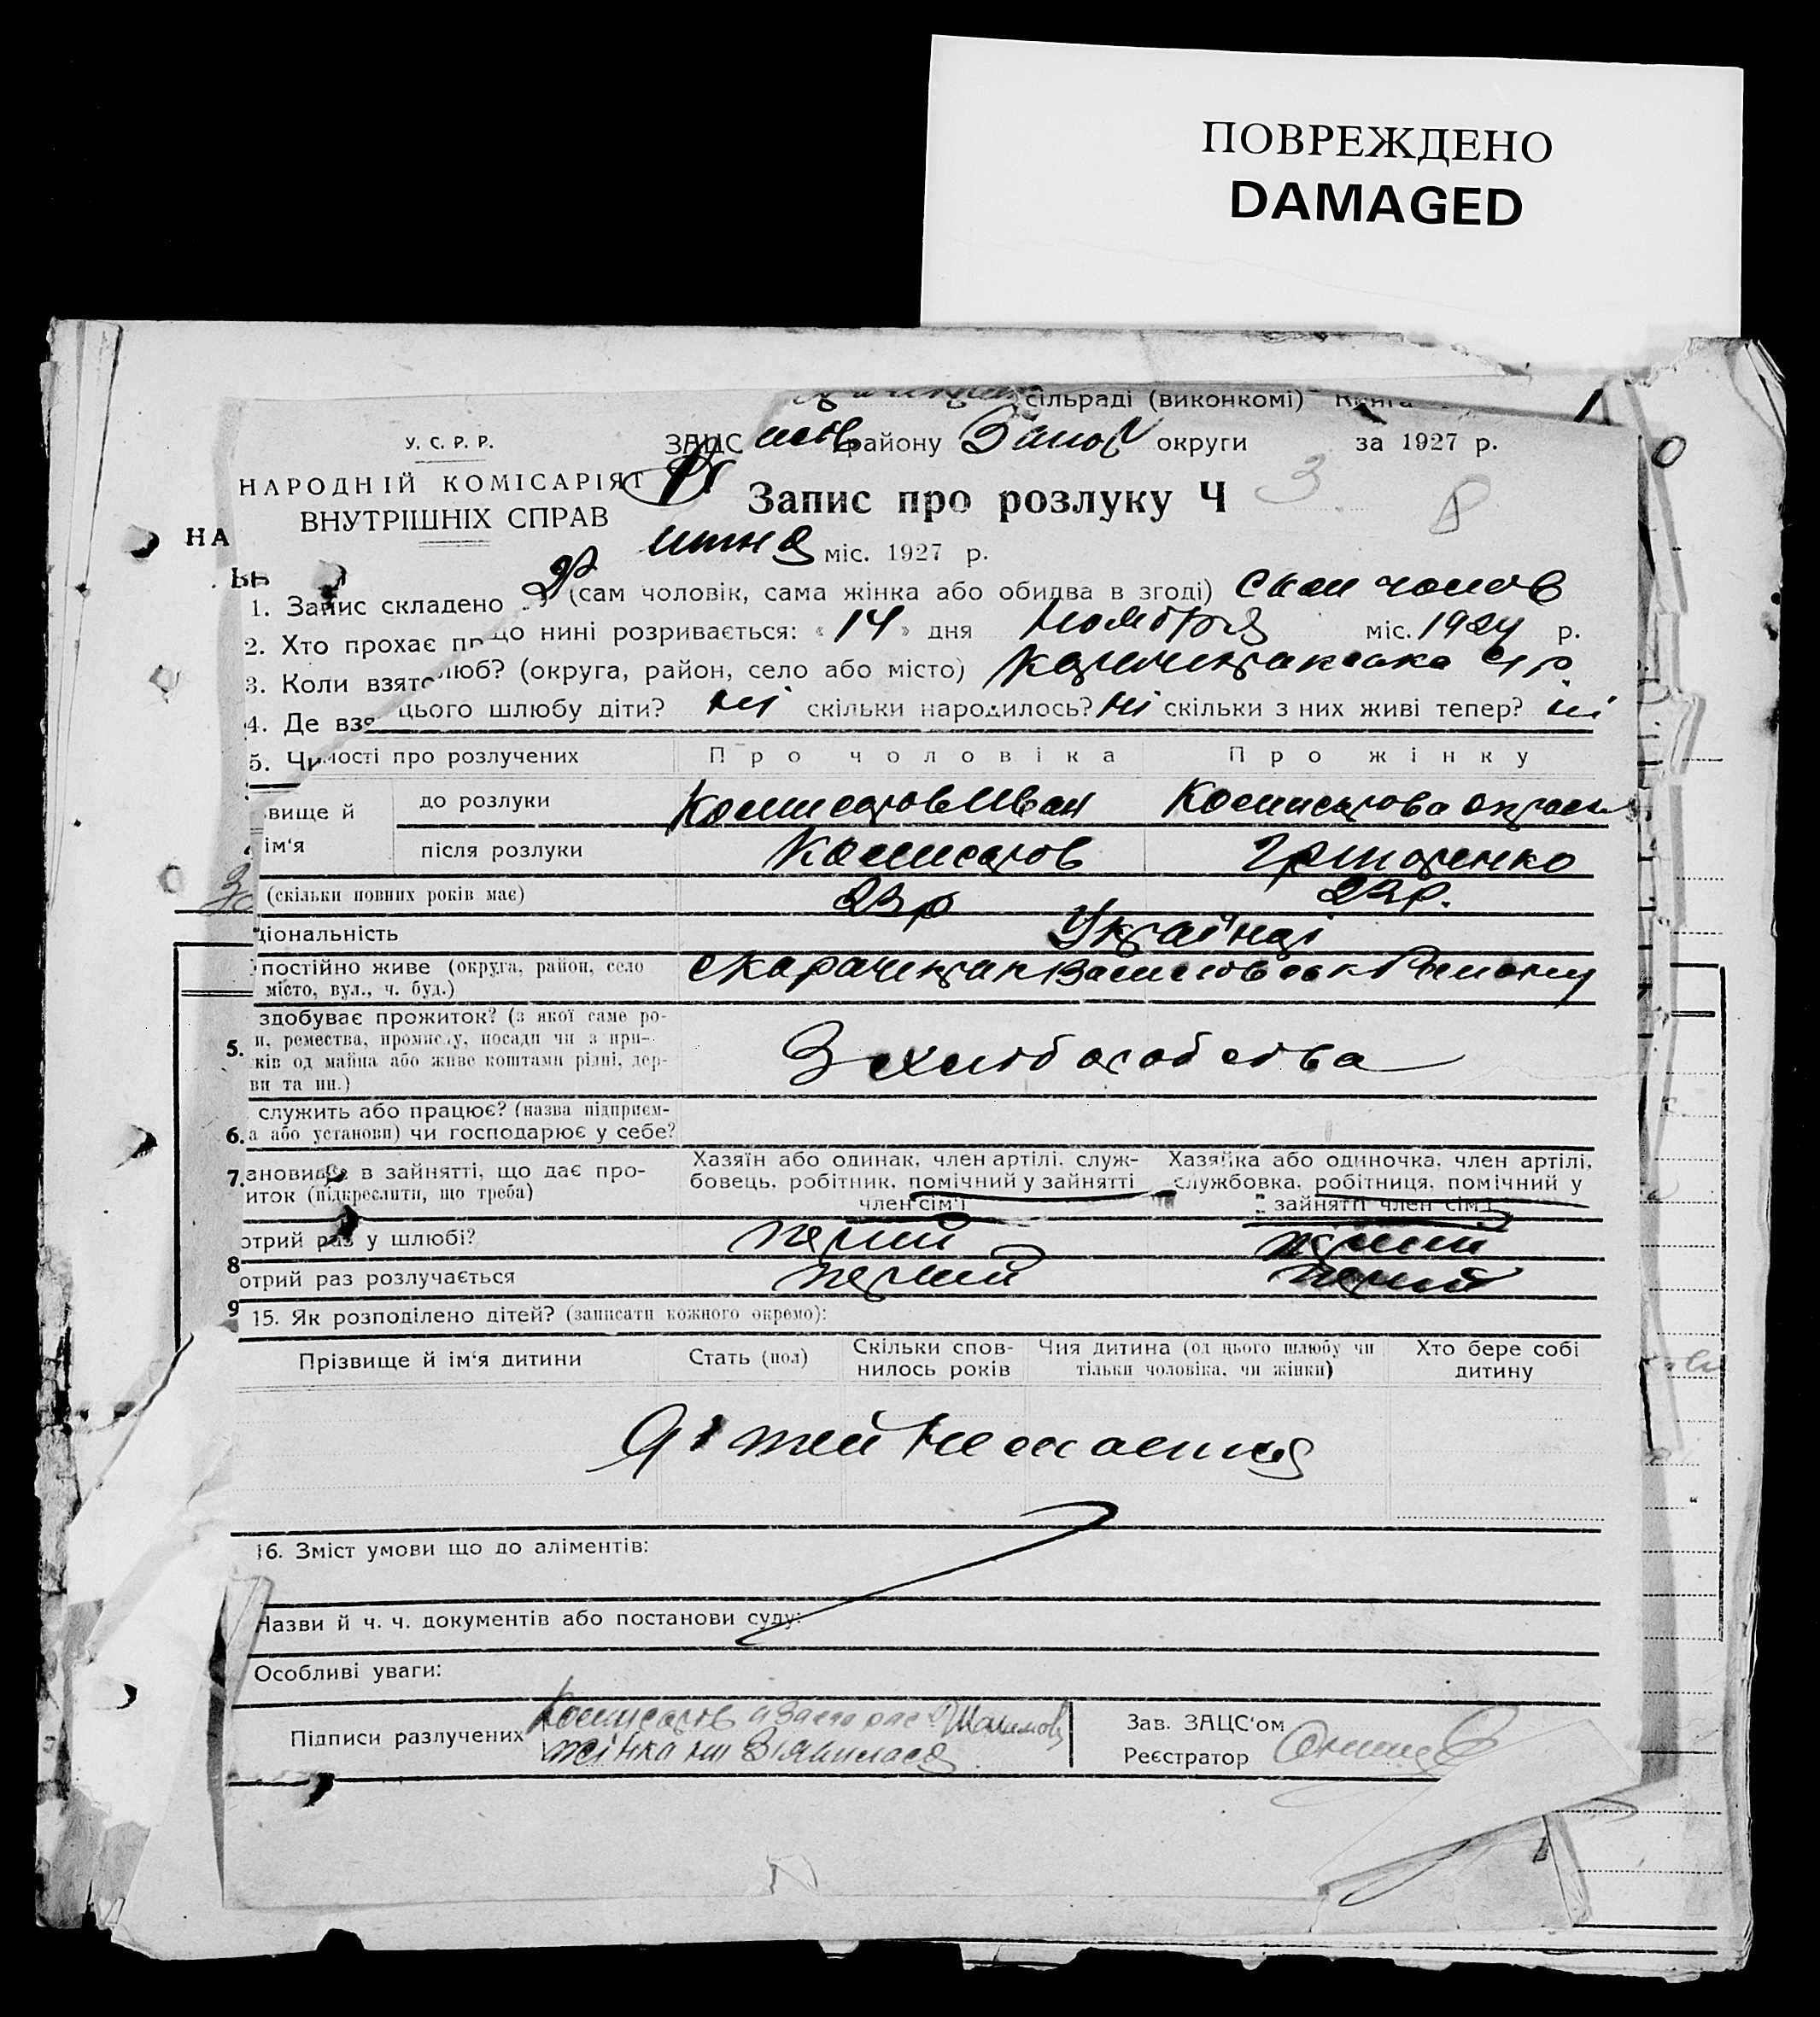 ПОВРЕЖДЕНО
DAMAGED
сільраді (виконкомі)
У. С. Р. Р.
ЗАЦС району Запор округи за 1927 р.
НАРОДНІЙ КОМІСАРІЯТ
ВНУТРІШНІХ СПРАВ
Запис про розлуку Ч 3
8
НА
міс. 1927 р.
1. Запис складено
(сам чоловік, сама жінка або обидва в згоді) сам чолов
2. Хто прохає
що нині розривається: « 14 » дня Ноября міс. 1924 р.
3. Коли взято
люб? (округа, район, село або місто)
4. Де взя
цього шлюбу діти? ні скільки народилось? ні скільки з них живі тепер? ні
5. Чи
мості про розлучених
Про чоловіка
Про жінку
звище й
ім'я
до розлуки
Комисаров Иван
Комисарова
після розлуки
Комисаров
(скільки повних років має)
23 р
22 р.
ціональність
Українці
постійно живе (округа, район, село
місто, вул., ч. буд.)
здобуває прожиток? (з якої саме ро-
и, ремества, промислу, посади чи з при-
5.
ків од майна або живе коштами рідні, дер-
ви та ин.)
З хлiборобства
служить або працює? (назва підприєм-
6.
а або установи) чи господарює у себе?
7.
ановище в зайнятті, що дає про-
иток (підкреслити, що треба)
Хазяїн або одинак, член артілі, служ-
бовець, робітник, помічний у зайнятті
член сім'ї
Хазяйка або одиночка, член артілі,
службовка, робітниця, помічний у
зайнятті член сім'ї
отрий раз у шлюбі?
перший
перший
8
отрий раз розлучається
перший
перший
9
15. Як розподілено дітей? (записати кожного окремо):
Прізвище й ім'я дитини
Стать (пол)
Скільки спов-
нилось років
Чия дитина (од цього шлюбу чи
тільки чоловіка, чи жінки)
Хто бере собі
дитину
Дітей не
16. Зміст умови що до аліментів:
Назви й ч. ч. документів або постанови суду:
Особливі уваги:
Підписи разлучених
Комисаров
жінка ни зъявилась
Зав. ЗАЦС'ом
Реєстратор